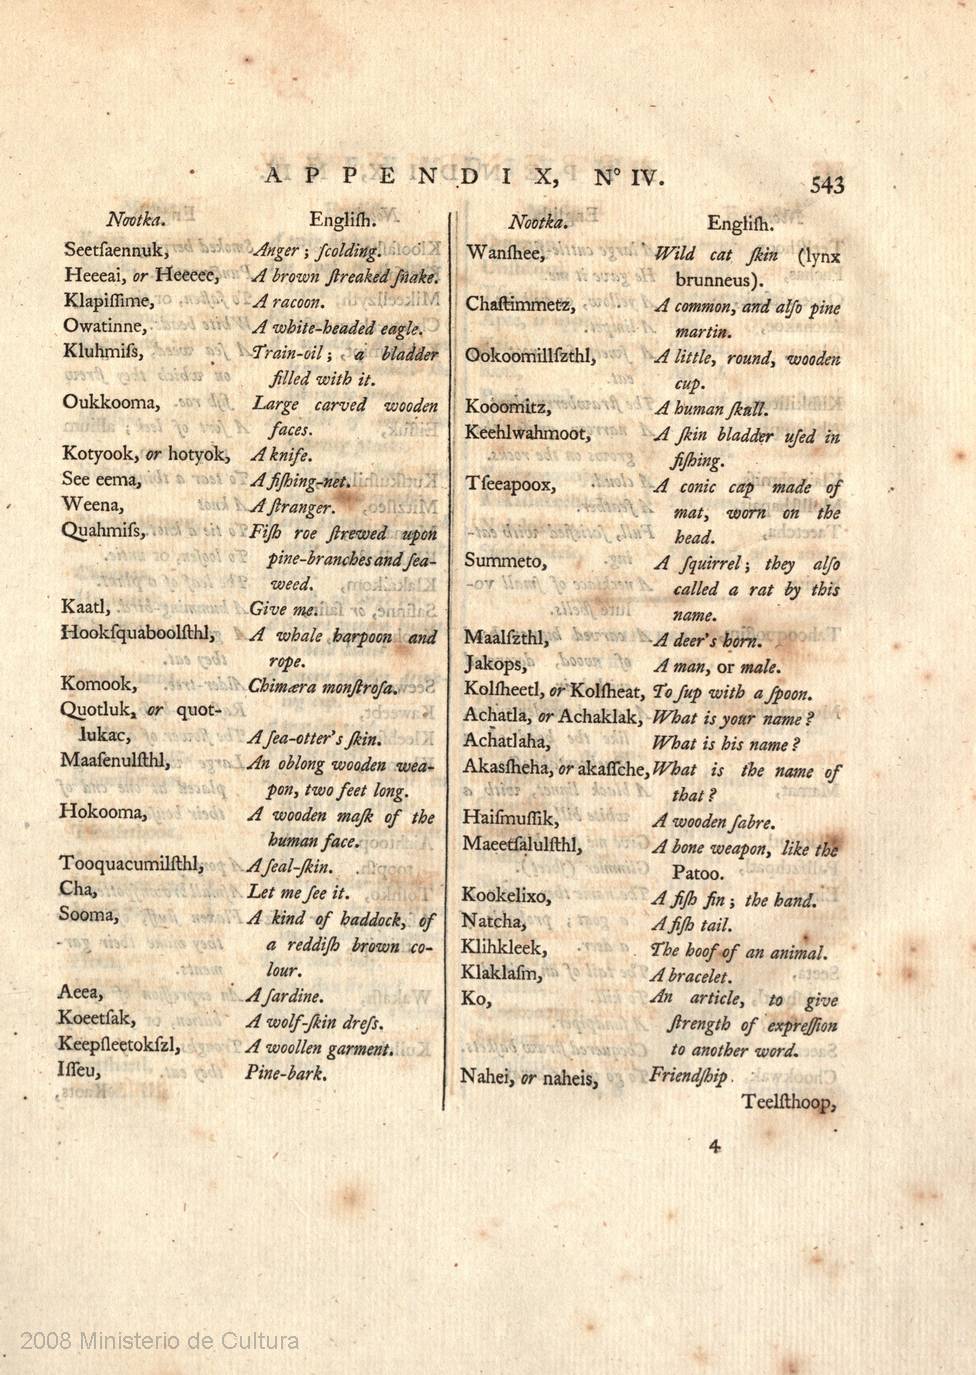 APPENDIX, N° IV. 543
Nootka. Engliſh.
Seetſaennuk, Anger; ſcolding.
Heeeai, or Heeeee, A brown ſtreaked ſnake.
Klapiſſime, A racoon.
Owatinne, A white-headed eagle.
Kluhmiſs, Train-oil; a bladder
filled with it.
Oukkooma, Large carved wooden
faces.
Kotyook, or hotyok, A knife.
See eema, A fiſhing-net.
Weena, A ſtranger.
Quahmiſs, Fiſh roe ſtrewed upon
pine-branches and ſea-
weed.
Kaatl, Give me.
Hookſquaboolſthl, A whale harpoon and
rope.
Komook, Chimæra monſtroſa.
Quotluk, or quot-
lukac, A ſea-otter's ſkin.
Maaſenulſthl, An oblong wooden wea-
pon, two feet long.
Hokooma, A wooden maſk of the
human face.
Tooquacumilſthl, A ſeal-ſkin.
Cha, Let me ſee it.
Sooma, A kind of haddock, of
a reddiſh brown co-
lour.
Aeea, A ſardine.
Koeetſak, A wolf-ſkin dreſs.
Keepſleetokſzl, A woollen garment.
Iſſeu, Pine-bark.
Nootka. Engliſh.
Wanſhee, Wild cat ſkin (lynx
brunneus).
Chaſtimmetz, A common, and alſo pine
martin.
Ookoomillſzthl, A little, round, wooden
cup.
Kooomitz, A human ſkull.
Keehlwahmoot, A ſkin bladder uſed in
fiſhing.
Tſeeapoox, A conic cap made of
mat, worn on the
head.
Summeto, A ſquirrel; they alſo
called a rat by this
name.
Maalſzthl, A deer's horn.
Jakops, A man, or male.
Kolſheetl, or Kolſheat, To ſup with a ſpoon.
Achatla, or Achaklak, What is your name?
Achatlaha, What is his name?
Akaſſheha, or akaſſche, What is the name of
that?
Haiſmuſſik, A wooden ſabre.
Maeetſalulſthl, A bone weapon, like the
Patoo.
Kookelixo, A fiſh fin; the hand.
Natcha, A fiſh tail.
Klihkleek, The hoof of an animal.
Klaklaſm, A bracelet.
Ko, An article, to give
ſtrength of expreſſion
to another word.
Nahei, or naheis, Friendſhip.
Teelſthoop,
4
2008 Ministerio de Cultura